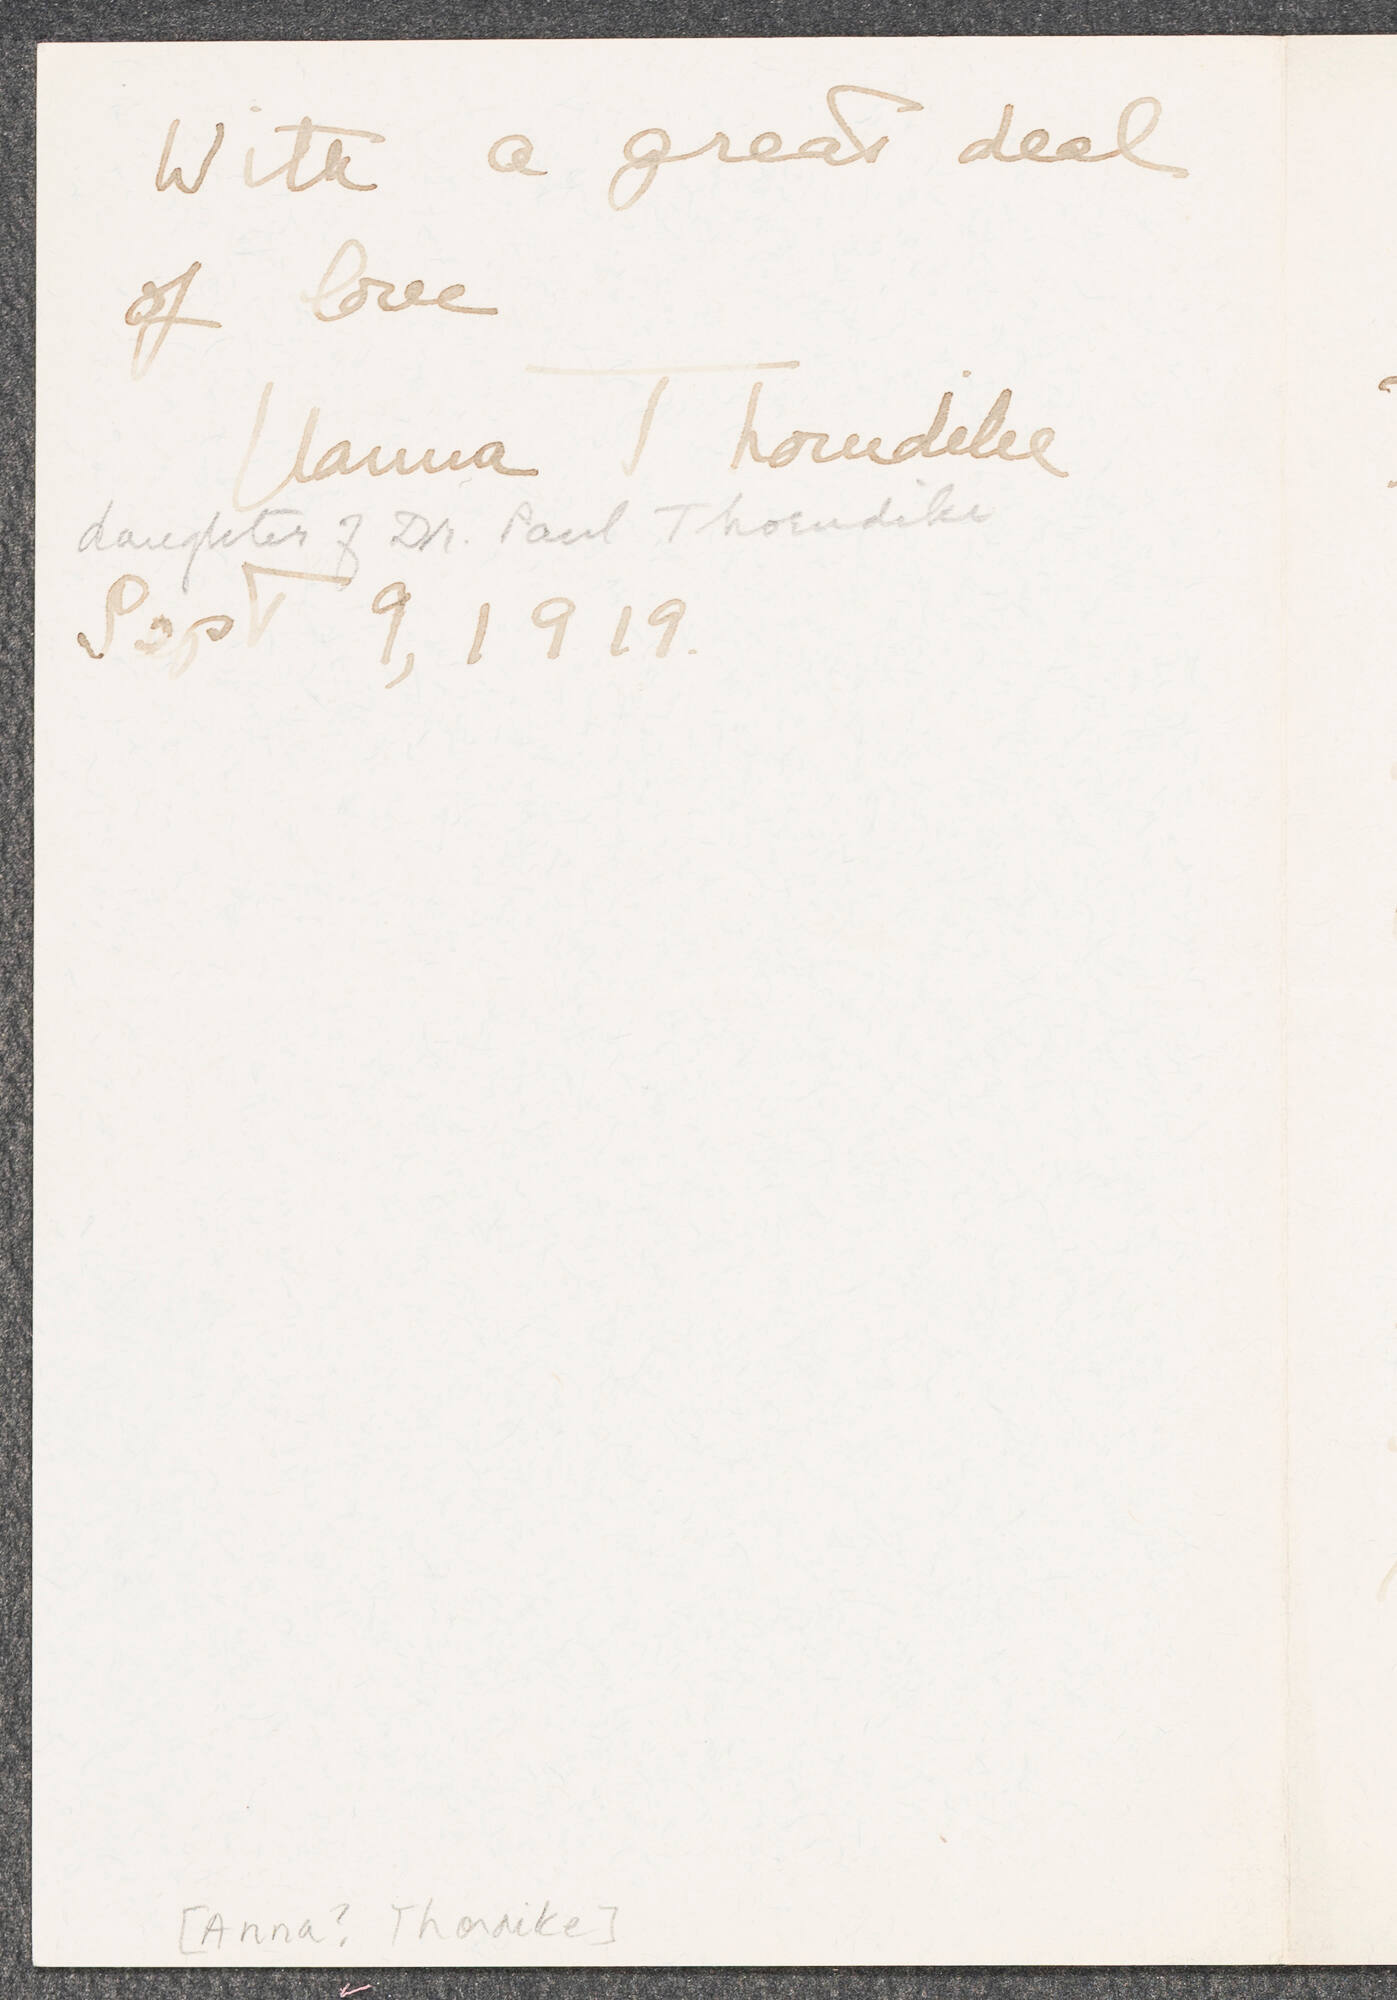 With a great deal
of love
Hanna Thorndike
daughter of Dr. Paul Thorndike
Sept 9, 1919.
[Anna? Thorndike]